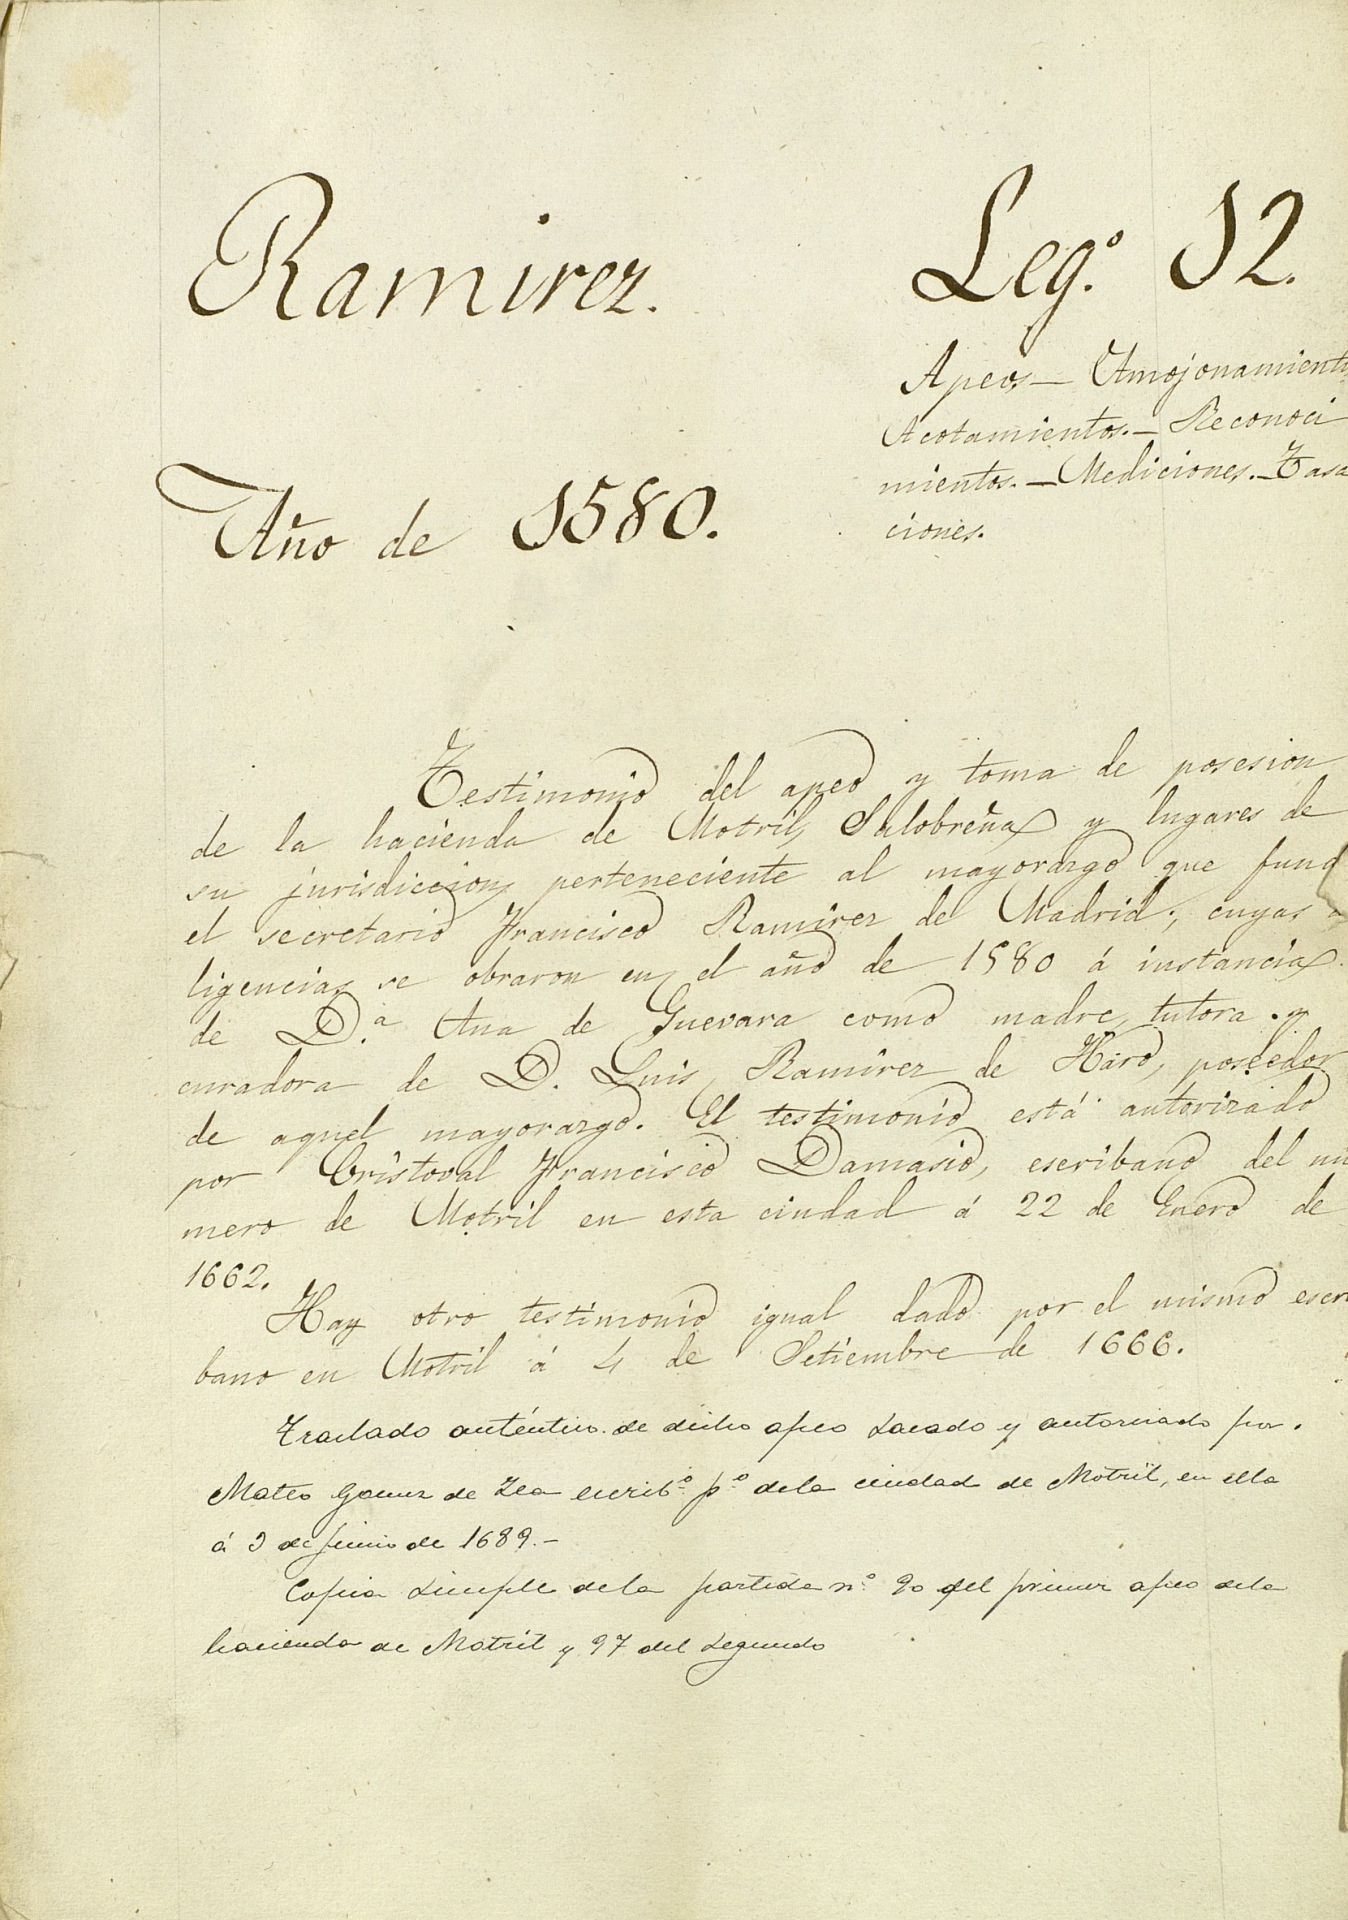 Ramirez.
Leg.º 12.
Apeos — Amojonamient
Acotamientos. — Reconoci
mientos. — Mediciones. — Tasa
ciones.
Año de 1580.
Testimonio del apeo y toma de posesion
de la hacienda de Motril, Salobreña y lugares de
su jurisdiccion, perteneciente al mayorazgo que fund
el secretario Francisco Ramirez de Madrid; cuyas
ligencias se obraron en el año de 1580 á instancia
de D.ª Ana de Guevara como madre, tutora y
curadora de D. Luis Ramirez de Haro, poseedor
de aquel mayorazgo. El testimonio está autorizado
por Cristoval Francisco Damasio, escribano del nu
mero de Motril en esta ciudad á 22 de Enero de
1662.
Hay otro testimonio igual dado por el mismo escri
bano en Motril á 4 de Setiembre de 1666.
Traslado auténtico de dicho apeo sacado y autorizado por
Mateo Gomez de Zea escrib.º p.º dela ciudad de Motril, en ella
á 9 de Junio de 1689. —
Copia simple dela partida n.º 90 del primer apeo dela
hacienda de Motril y 97 del segundo